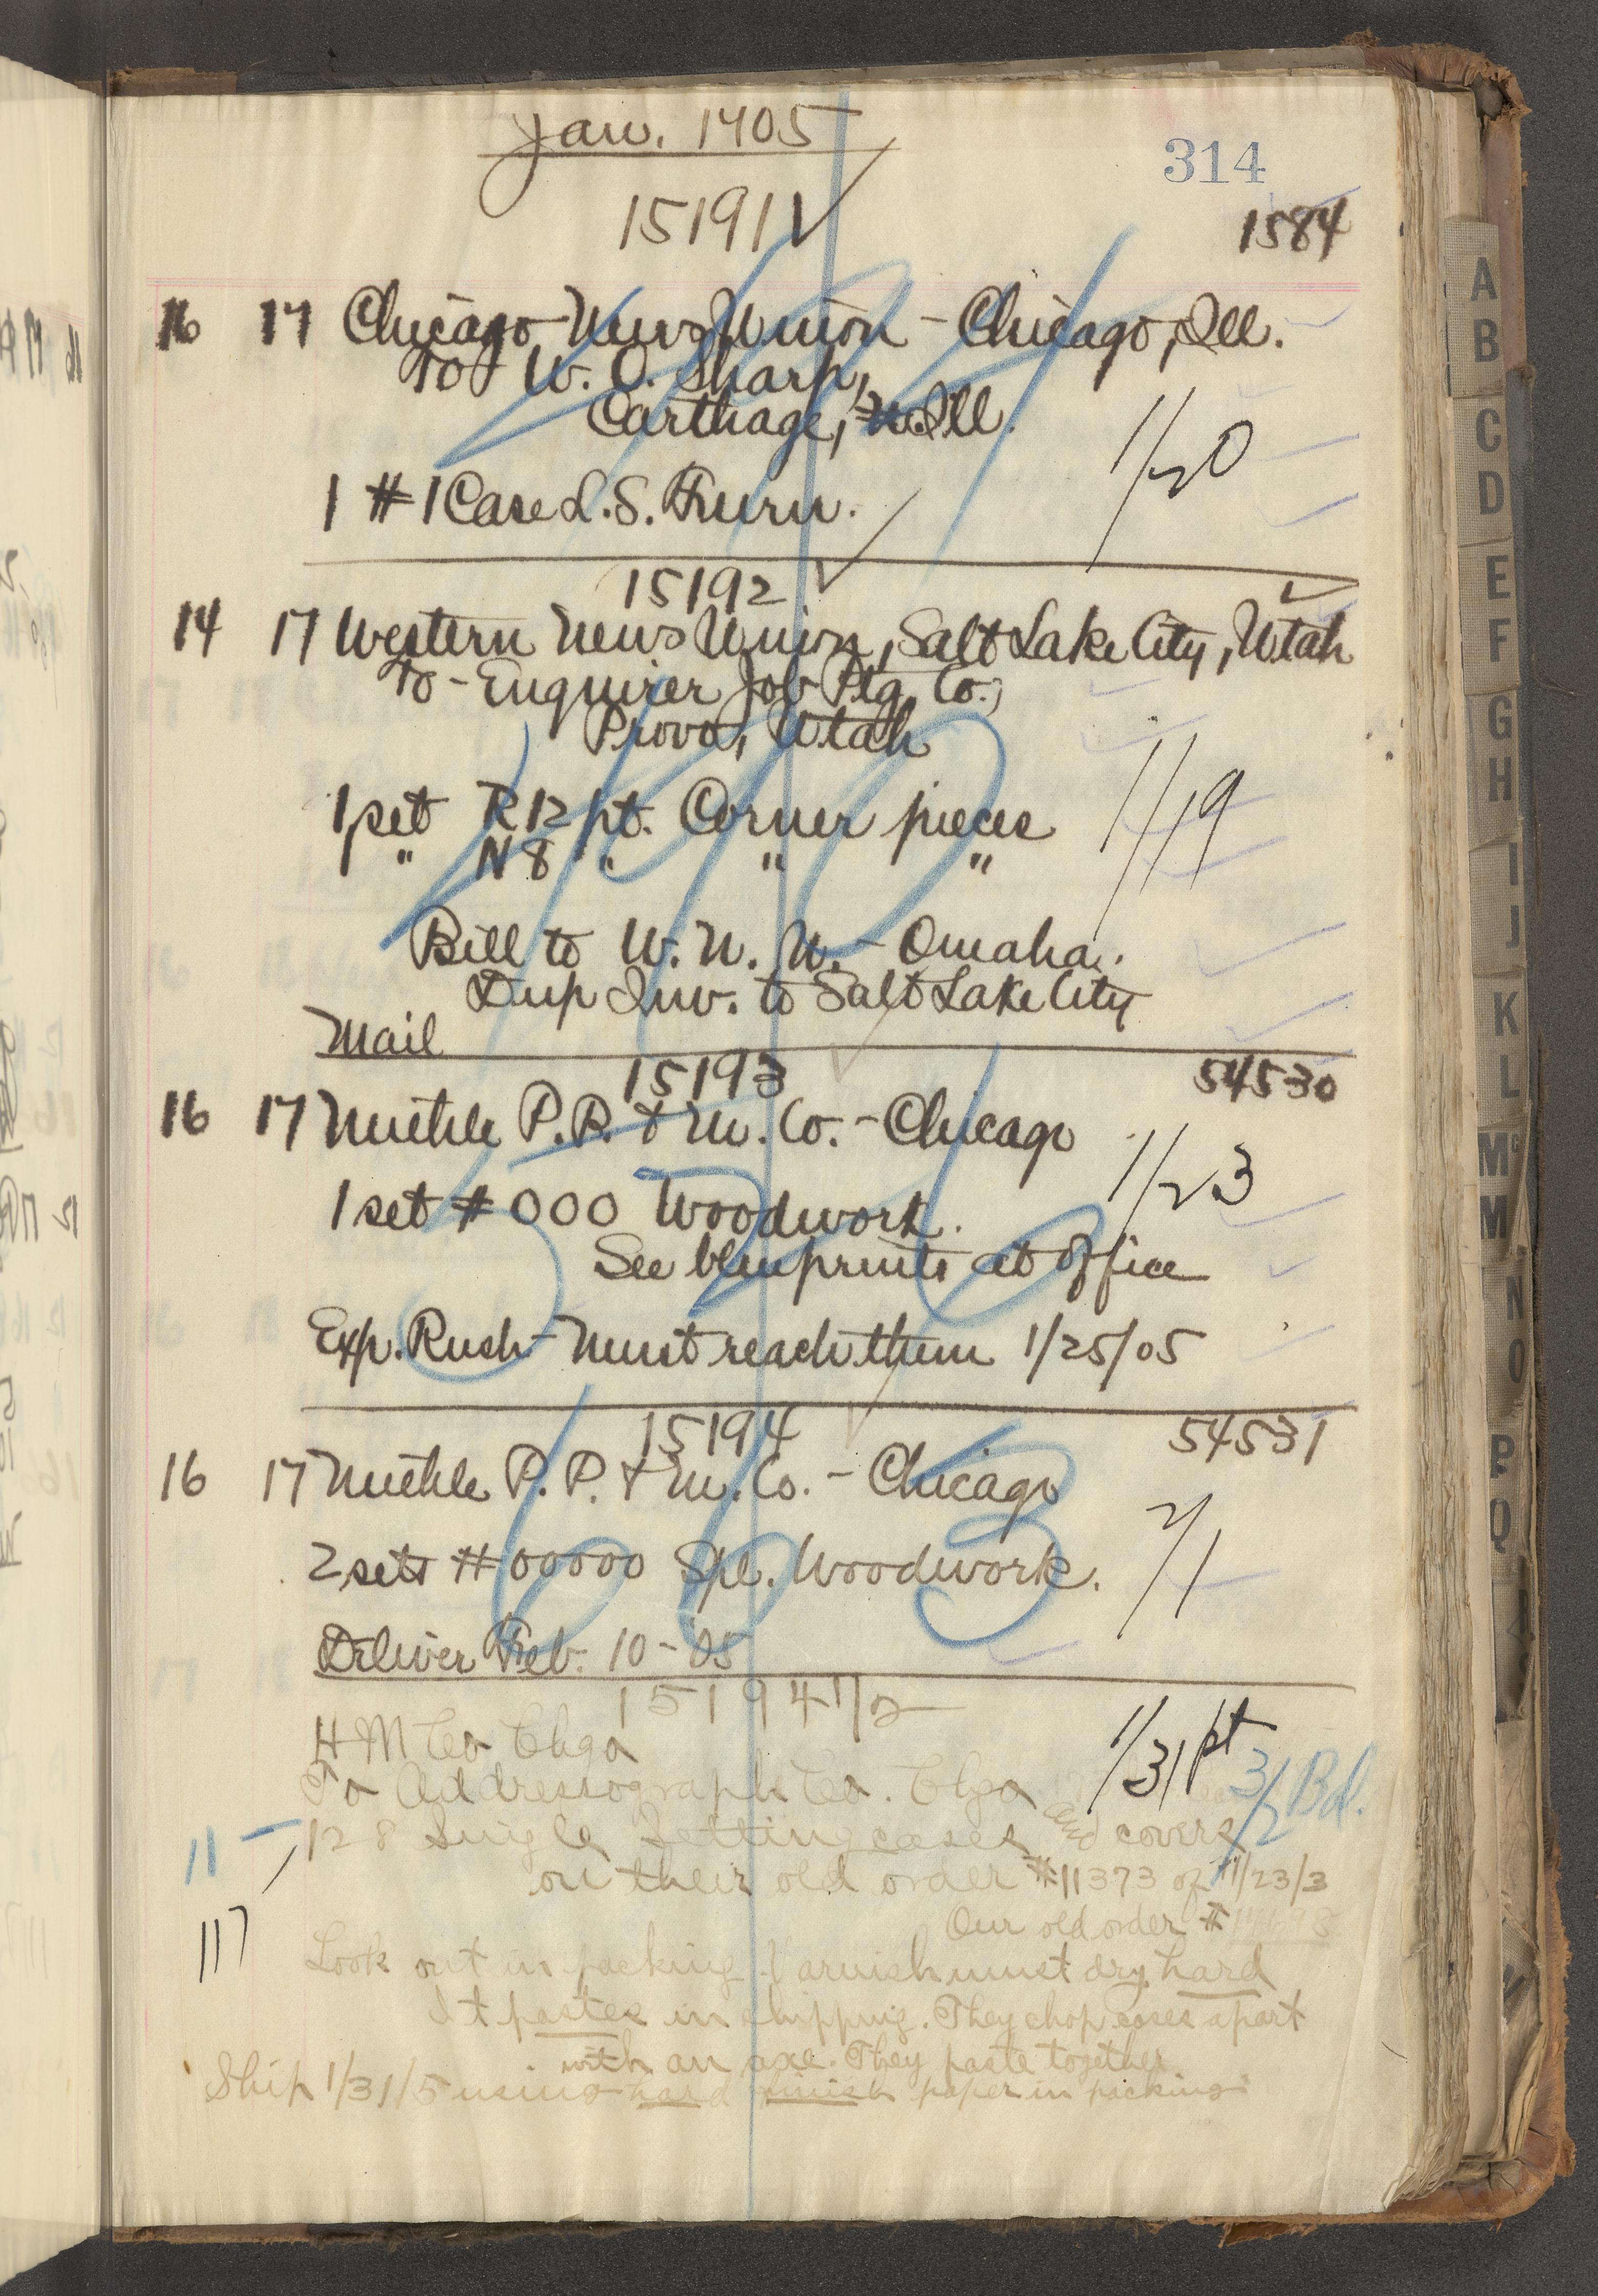 Jan. 1905
314
15191
1584
16 17 Chicago News Union - Chicago, Ill.
To W. O. Sharp,
Carthage, Ill.
1/20
1 #1 Case L.S. Furn.
15192
14 17 Western News Union, Salt Lake City, Utah
To - Enquirer Job Ptg. Co.,
Provo, Utah
1 set R 12 pt. Corner pieces 1/19
" N 8 " " "
Bill to W. N. U. - Omaha.
Dup Inv. to Salt Lake City
Mail
15193 54530
16 17 Miehle P. P. & M. Co. - Chicago
1/23
1 set #000 Woodwork.
See blueprints at office
Exp. Rush - Must reach them 1/25/05
15194 54531
16 17 Miehle P. P. & M. Co. - Chicago
2 sets #00000 Spl. Woodwork. 2/1
Deliver Feb. 10-'05
15194 1/2
H M Co Chgo 1/31 pt
To Addressograph Co. Chgo 3/2 Bd.
11 - 128 Single Setting cases and covers
on their old order #11373 of 11/23/3
Our old order #
117
Look out in packing Varnish must dry hard
It pastes in shipping. They chop cases apart
with an axe. They paste together
Ship 1/31/5 using hard finish paper in packing
A
B
C
D
E
F
G
H
I
J
K
L
Mc
M
N
O
P
Q